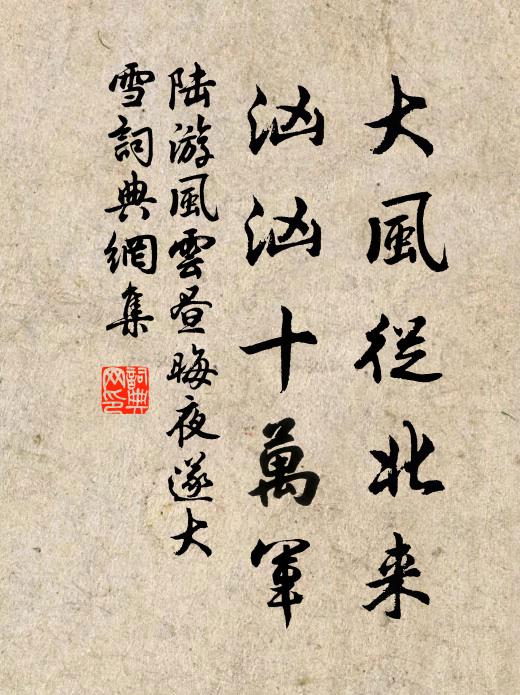 大風從北来
汹汹十萬軍
陸游風雲昼晦夜遂大
雪詞典網集
詞典
网印